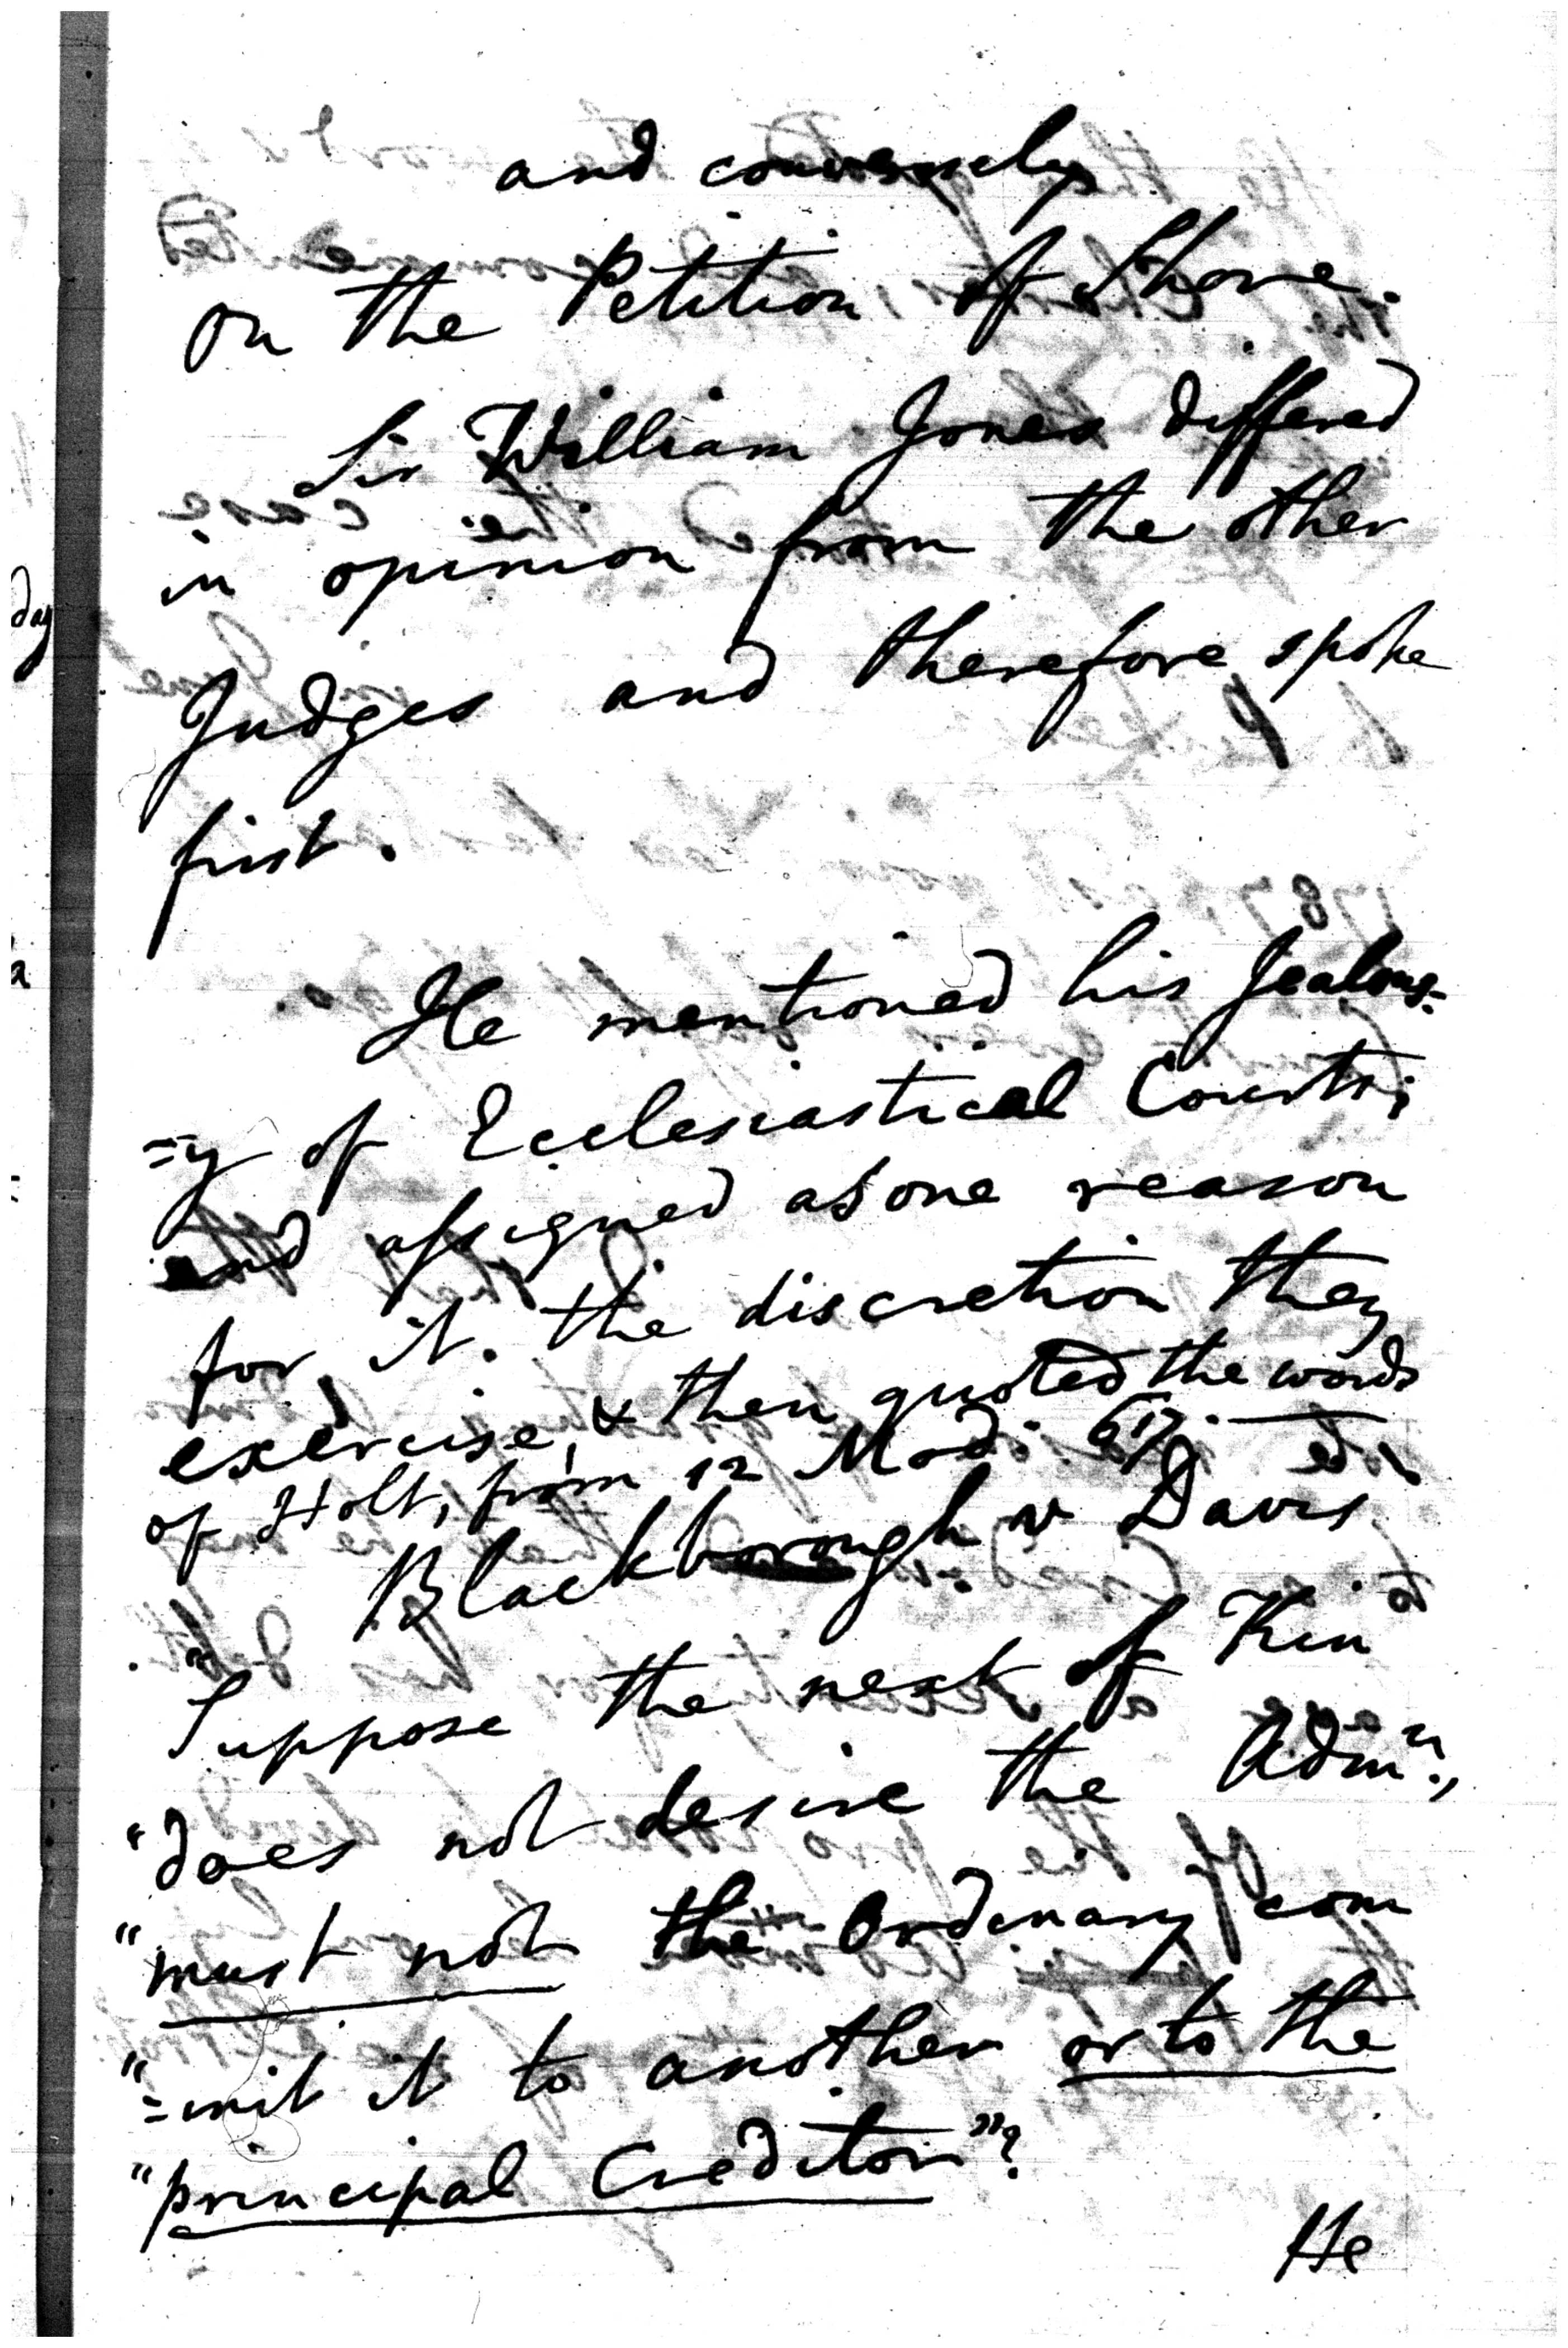 and conversely
on the Petition of Shore.
Sir William Jones differed
in opinion from the other
Judges and therefore spoke
first.
He mentioned his Jealous=
=y of Ecclesiastical Courts;
and assigned as one reason
for it. the discretion they
exercise, & then quoted the words
of Holt, from 12 Mod: 617.
Blackborough v Davis
"Suppose the next of Kin
"does not desire the Admn.,
"must not the Ordinary com
"=mit it to another or to the
"principal Creditor"?
He